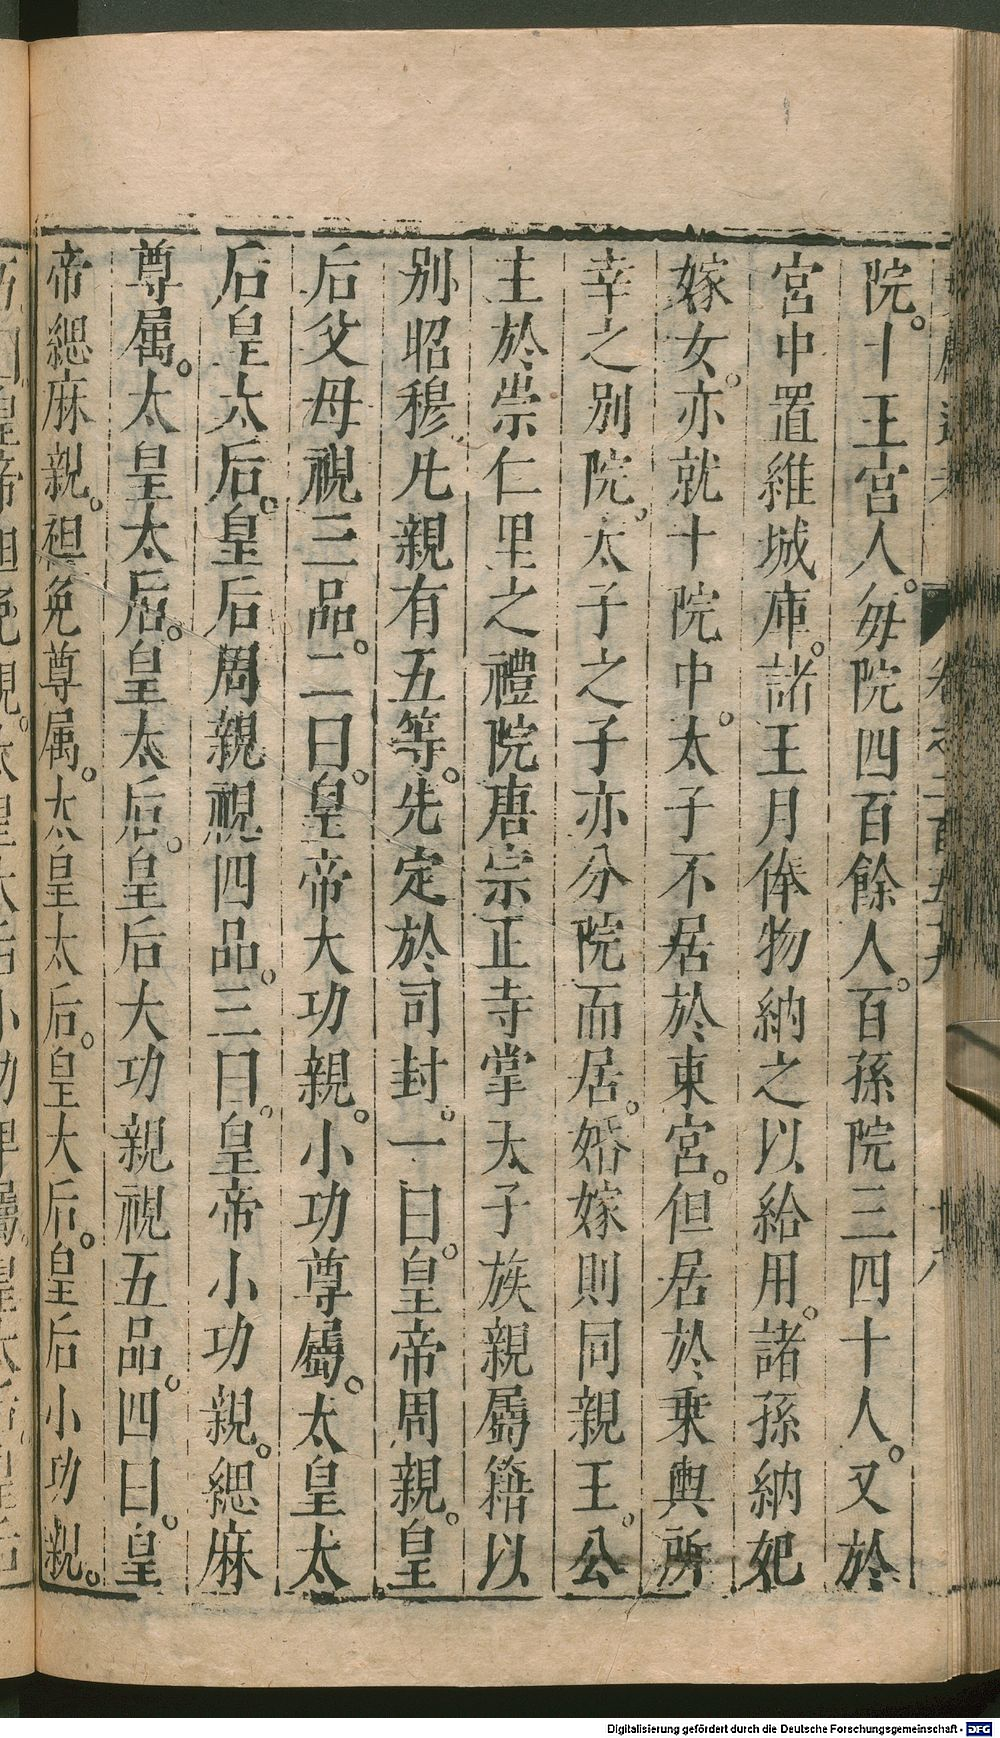 院。十王宮人。每院四百餘人。百孫院三四十人。又於
宮中置維城庫。諸王月俸物納之以給用。諸孫納妃
嫁女。亦就十院中。太子不居於東宮。但居於乗輿所
幸之別院。太子之子亦分院而居。婚嫁則同親王。公
主於崇仁里之禮院。唐宗正寺掌天子族親屬籍以
别昭穆。凡親有五等。先定於司封。一曰。皇帝周親。皇
后父母視三品。二曰。皇帝大功親。小功尊屬。太皇太
后皇太后。皇后周親視四品。三曰。皇帝小功親。緦麻
尊属。太皇太后。皇太后。皇后大功親視五品。四曰。皇
帝緦麻親。袒免尊属。太皇太后。皇太后。皇后小功親。
Digitalisierung gefördert durch die Deutsche Forschungsgemeinschaft - DFG